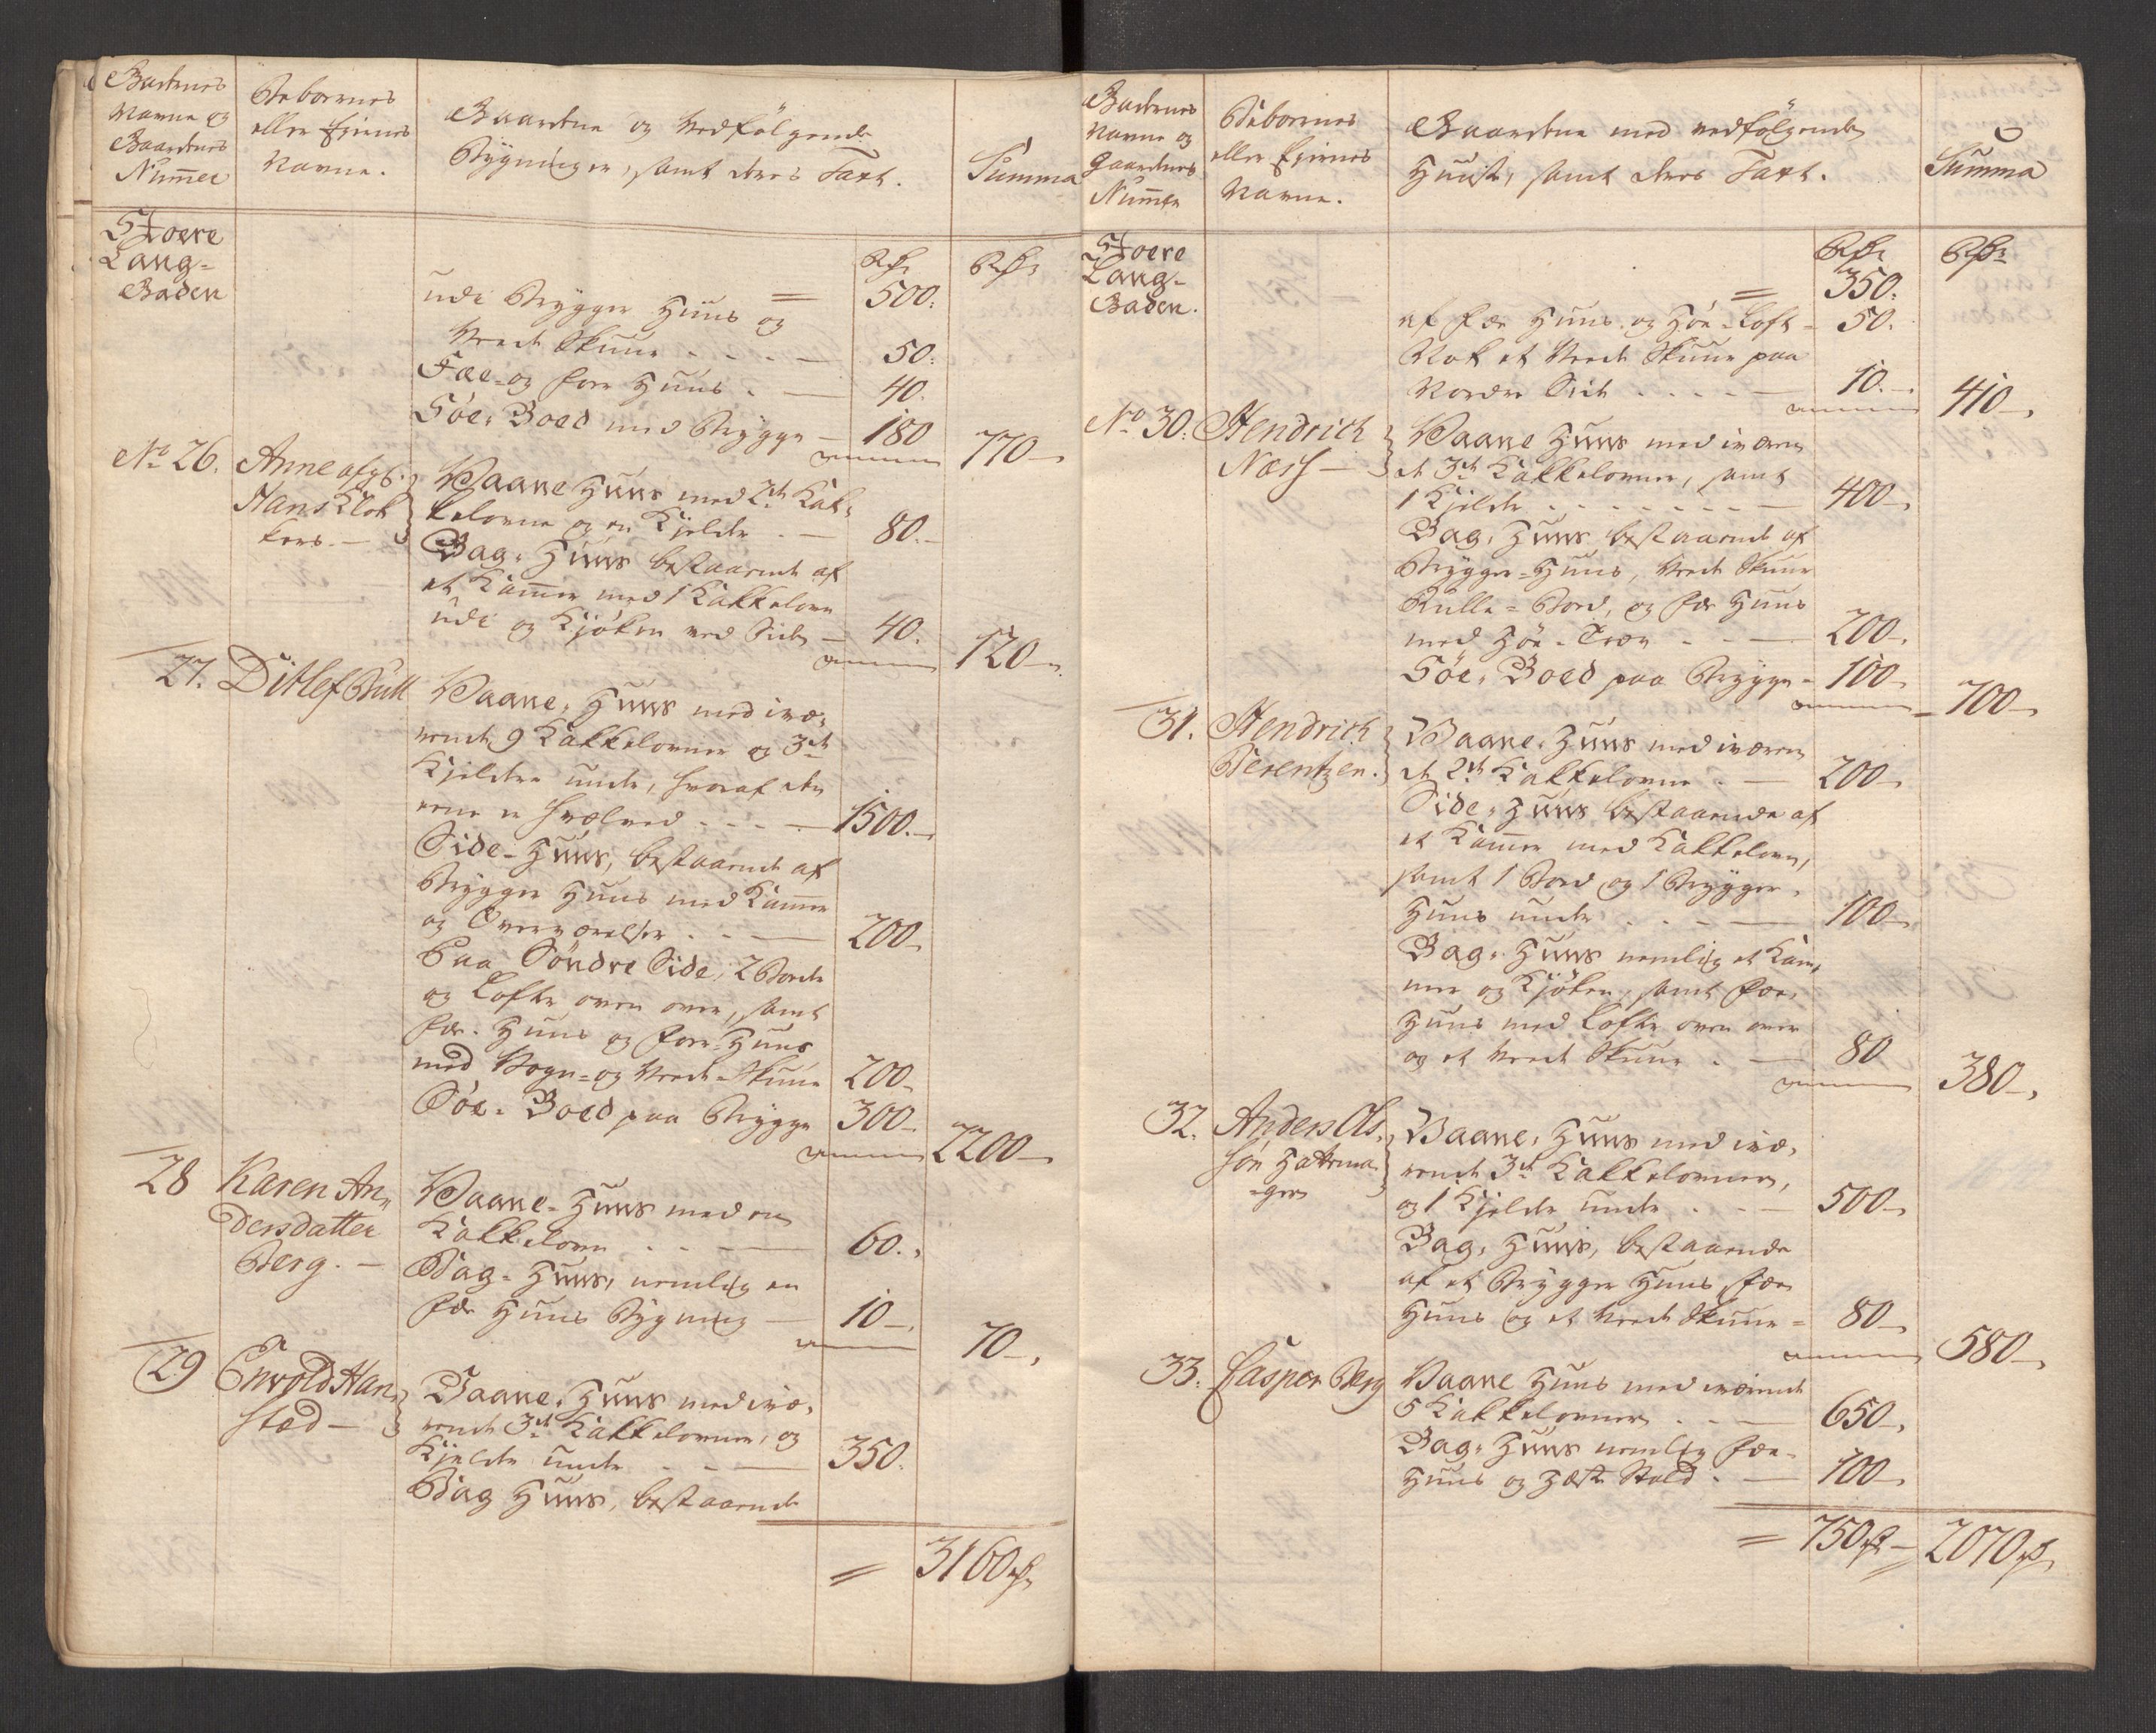 Gadernes
Navne og
Gaardnes
Nummer
Beboernes
eller Eiernes
Navne.
Gaardene og Vedfølgende
Bygninger, samt deres Taxt.
Summa
Stoere
Lang-
Gaden
Rdr
Rdr
= 500.
udi Brygger Huus og
Veed Skuur - - - - 50.
Fæe- og Fore Huus. - 40.
Søe-Boed med Brygge - 180 770-
No 26. Anne afg.
Hans Klok
kers. -
Vaane Huus med 2de Kak-
kelovne og en Kjelder - - 80.-
Bag-Huus bestaaende af
et Kammer med 1 Kakkelovn
udi og Kjøken ved Siden - 40. 120-
27. Ditlef Bull
Vaane-Huus med ivæ-
rende 9 Kakkelovner og 3de
Kjeldre under, hvoraf den
eene er hvælved - - - 1500.-
Side-Huus, bestaaende af
Brygger Huus med Kammer
og Overværelser - - - 200-
Paa Søndre Side, 2 Boder
og Lofte oven over, samt
Fæe-Huus og Fore-Huus
med Vogn- og Veed-Skuur 200-
Søe-Boed paa Brygge 300- 2200-
28 Karen An-
dersdatter
Berg. -
Vaane-Huus med en
Kakkelovn - - - 60.
Bag-Huus, nemlig en
Fæe Huus Bygning - 10- 70-
29 Envold Han-
sted -
Vaane-Huus med ivæ-
rende 3de Kakkelovner, og
Kjelder under - - - 350.
Bag Huus, bestaaende
= 3160 rdr
Gadernes
Navne og
Gaardnes
Nummer
Beboernes
eller Eiernes
Navne.
Gaardene med vedfølgende
Huuse, samt deres Taxt.
Summa
Stoere
Lang-
Gaden.
Rdr
Rdr
= 350.
af Fæe Huus og Høe-Loft - 50.
Nok et Veed Skuur paa
Nordre Side . . . . - 10.- 410-
No 30. Hendrich
Næss -
Vaane Huus med iværen
de 3de Kakkelovner, samt
1 Kjelder - - - - - - 400-
Bag-Huus bestaaende af
Brygger-Huus, Veed Skuur
Rulle-Boed, og Fæe Huus
med Høe-Træv - - - 200-
Søe-Boed paa Brygge - 100- 700-
31. Hendrich
Berentzen.
Vaane-Huus med iværen
de 2de Kakkelovne - - 200-
Side-Huus bestaaende af
et Kammer med Kakkelovn,
samt 1 Boed og 1 Brygger-
Huus under . . - - 100-
Bag-Huus nemlig et Kam-
mer og Kjøken, samt Fæe-
Huus med Lofte oven over
og et Veed Skuur . - 80 380-
32. Anders Ols-
søn
Vaane-Huus med ivæ-
rende 3de Kakkelovner,
og 1 Kjelder under - - 500-
Bag-Huus, bestaaende
af et Brygger Huus, Fæe
Huus og et Veed Skuur - 80- 580-
33. Casper Berg
Vaane Huus med iværende
5 Kakkelovner . - - 650-
Bag-Huus nemlig Fæe-
Huus og Hæste Stald. - 100-
= 750 rdr - 2070 rdr